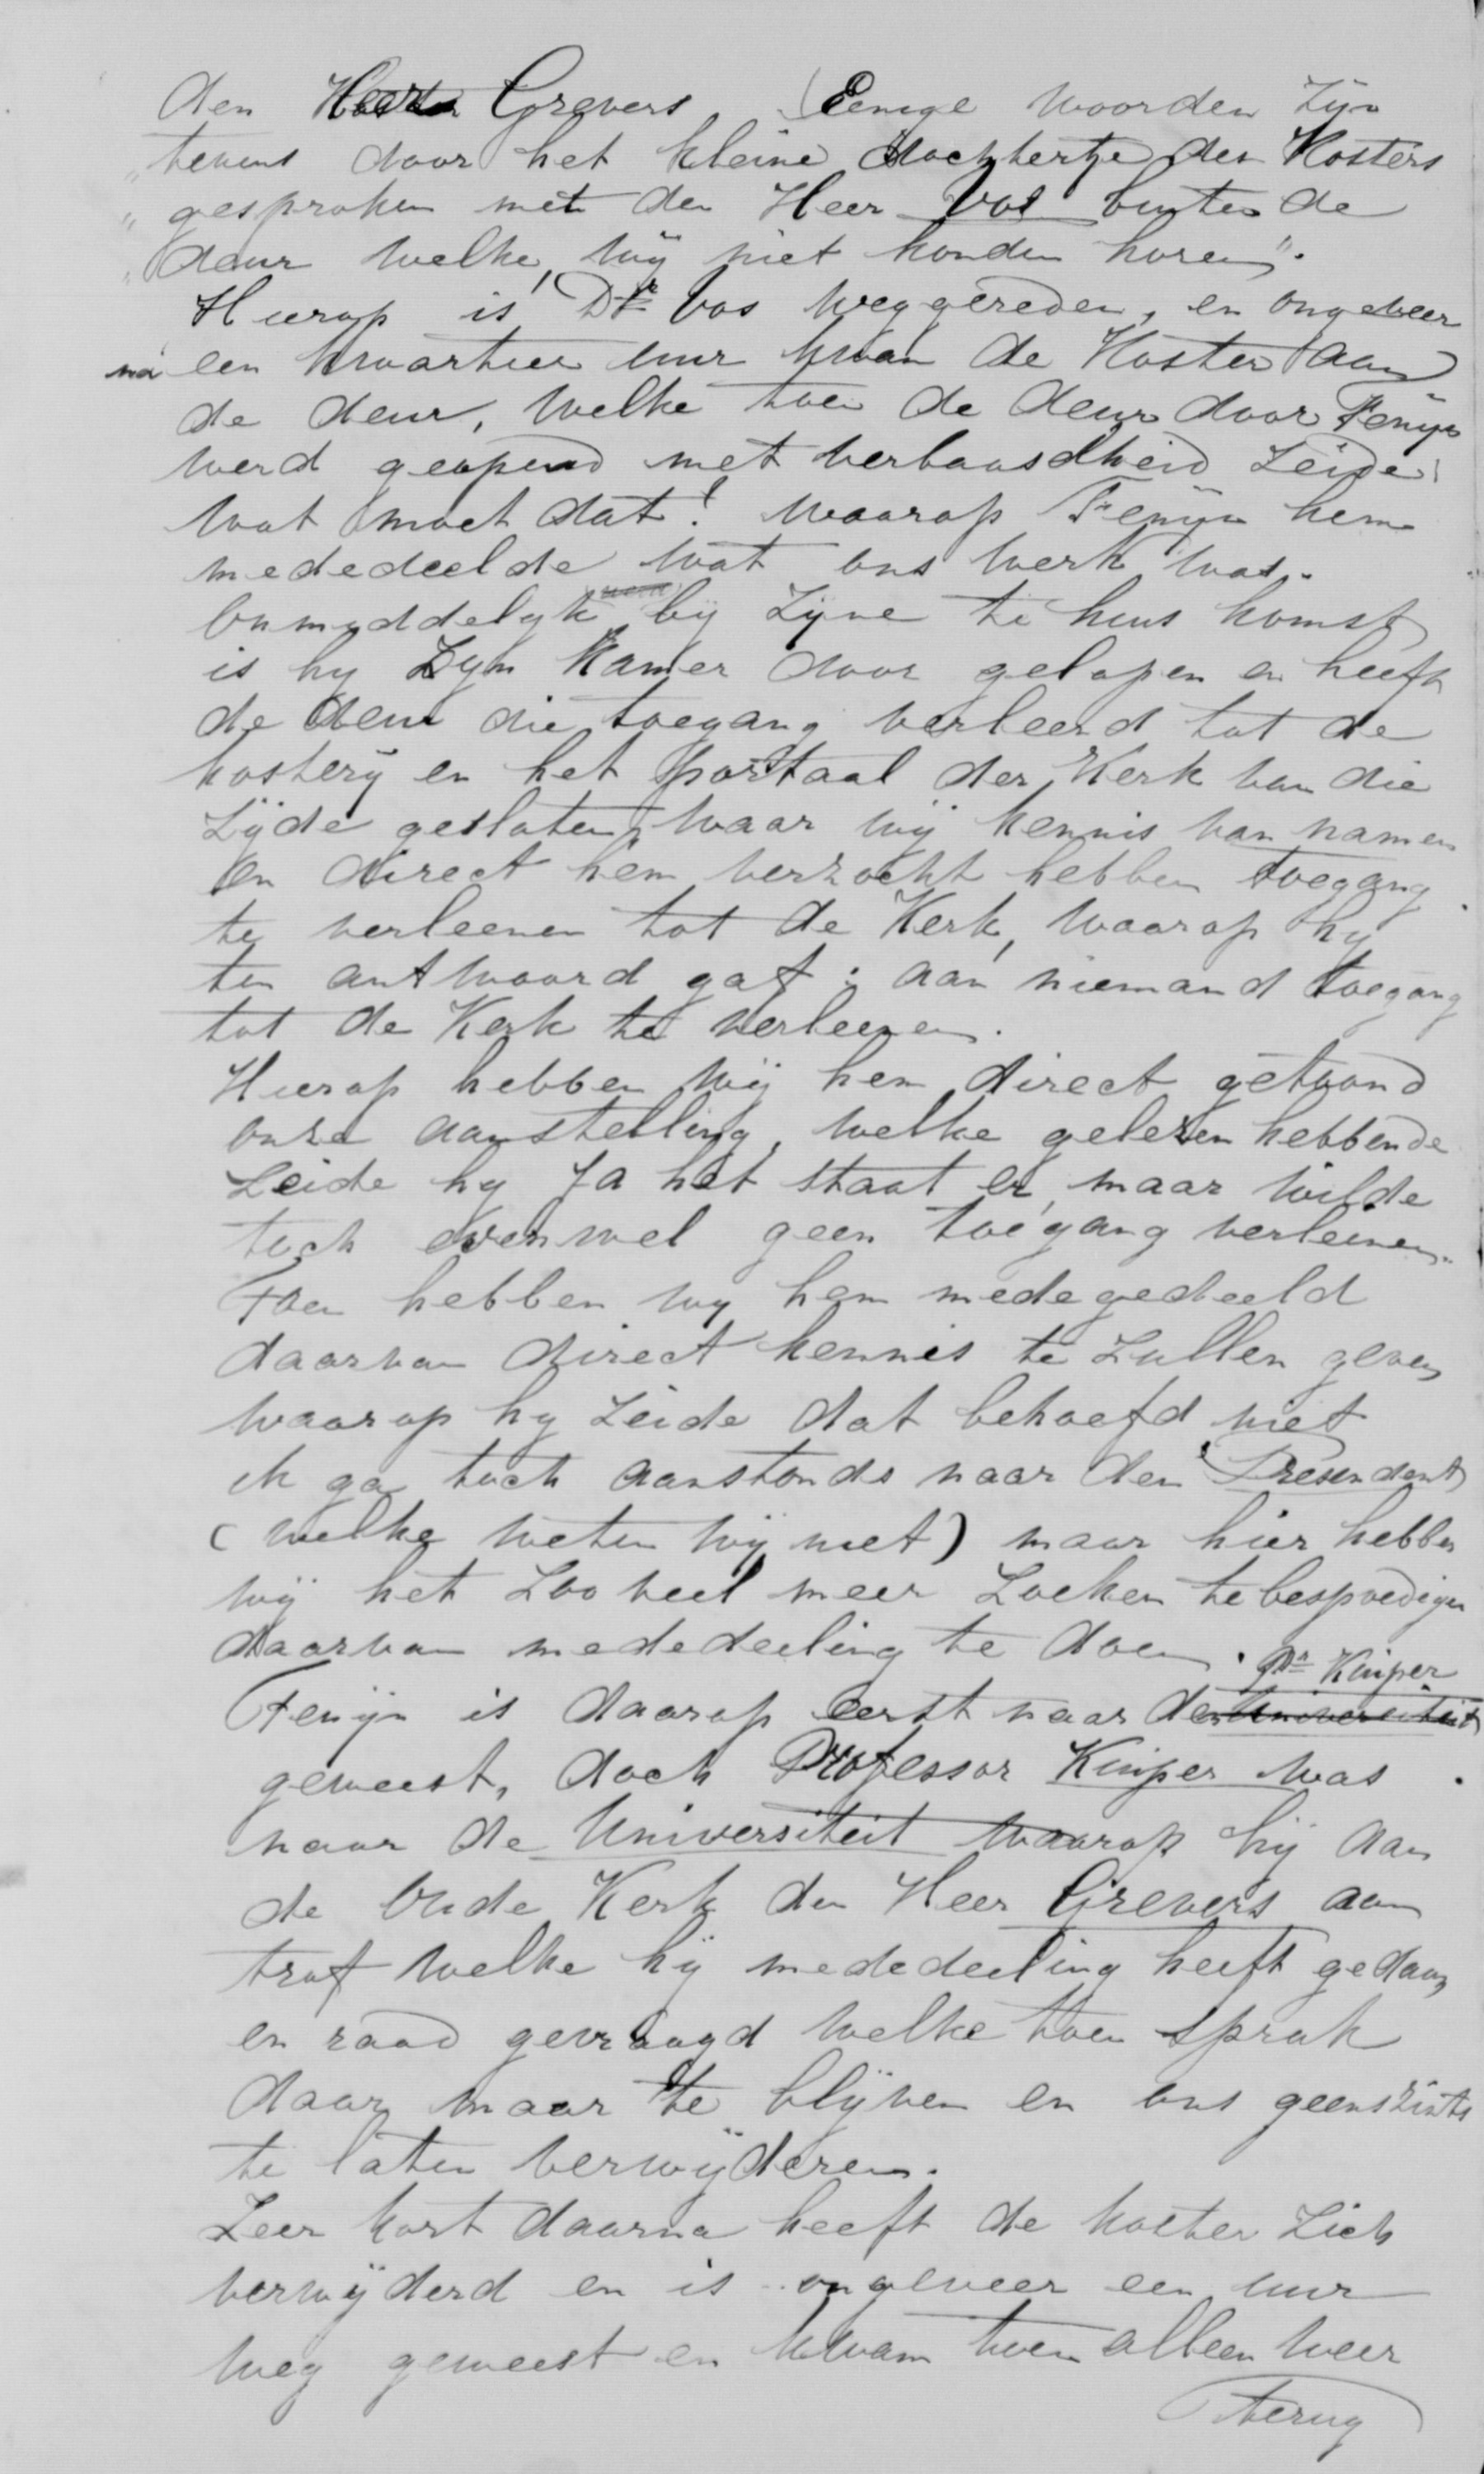 den Heer Grevers. (Eenige woorden zijn
" tevens door het kleine dochtertje des Kosters
" gesproken met den Heer Vos buiten de
" deur welke wij niet konden horen".
Hierop is Dr Vos weggereden, en ongeveer
na een kwartier uur kwam de Koster aan
de deur, welke toen de deur door Fenijn
werd geopend met verbaasdheid zeide:
Wat moet dat! waarop Fenijn hem
mededeelde wat ons werk was.
Onmyddelyk bij zijne te huis komst
is hy Zyn Kamer door gelopen en heeft
de deur die toegang verleend tot de
kosterij en het portaal der Kerk van die
Zijde gesloten, waar wij kennis van namen
en direct hem verzocht hebben toegang
te verleenen tot de Kerk, waarop hy
ten antwoord gaf: aan niemand toegang
tot de Kerk te verleenen.
Hierop hebben wij hem direct getoond
onze aanstelling, welke gelezen hebbende
zeide hy Ja het staat er, maar wilde
toch evenwel geen toegang verleenen.
Toen hebben wy hem medegedeeld
daarvan direct kennis te zullen geven
waarop hy zeide dat behoefd niet
ik ga toch aanstonds naar den Presendent
(welke weten wij niet) maar hier hebben
wij het zoo veel meer zoeken te bespoedigen
daarvan mededeeling te doen. Pr Kuiper
Fenijn is daarop eerst naar den Universiteit
geweest, doch Professor Kuiper was
naar de Universiteit waarop hij aan
de Oude Kerk den Heer Grevers aan
trof welke hij mededeeling heeft gedaan
en raad gevraagd welke toen sprak
daar maar te blijven en ons geenszints
te laten verwijderen.
Zeer kort daarna heeft de koster zich
verwijderd en is ongeveer een uur
weg geweest en kwam toen alleen weer
terug